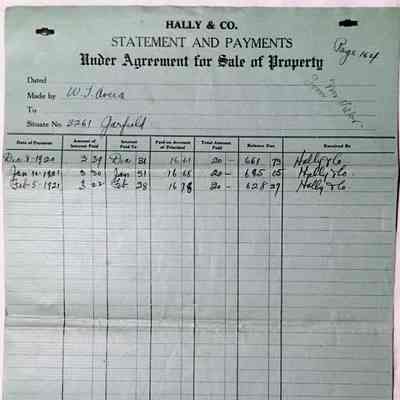 HALLY & CO.
STATEMENT AND PAYMENTS
Page 164
Under Agreement for Sale of Property
Dated
Made by W. J.
To
Situate No. 2261 Garfield
Date of Payment Amount of Interest Paid Interest Paid To Paid on Account of Principal Total Amount Paid Balance Due Received By
Dec 8 1920 3 39 Dec 31 16 61 20 - 661 73 Hally & Co.
Jan 10 1921 3 30 Jan 31 16 68 20 - 645 05 Hally & Co.
Feb 5 1921 3 22 Feb 28 16 78 20 - 628 27 Hally & Co.